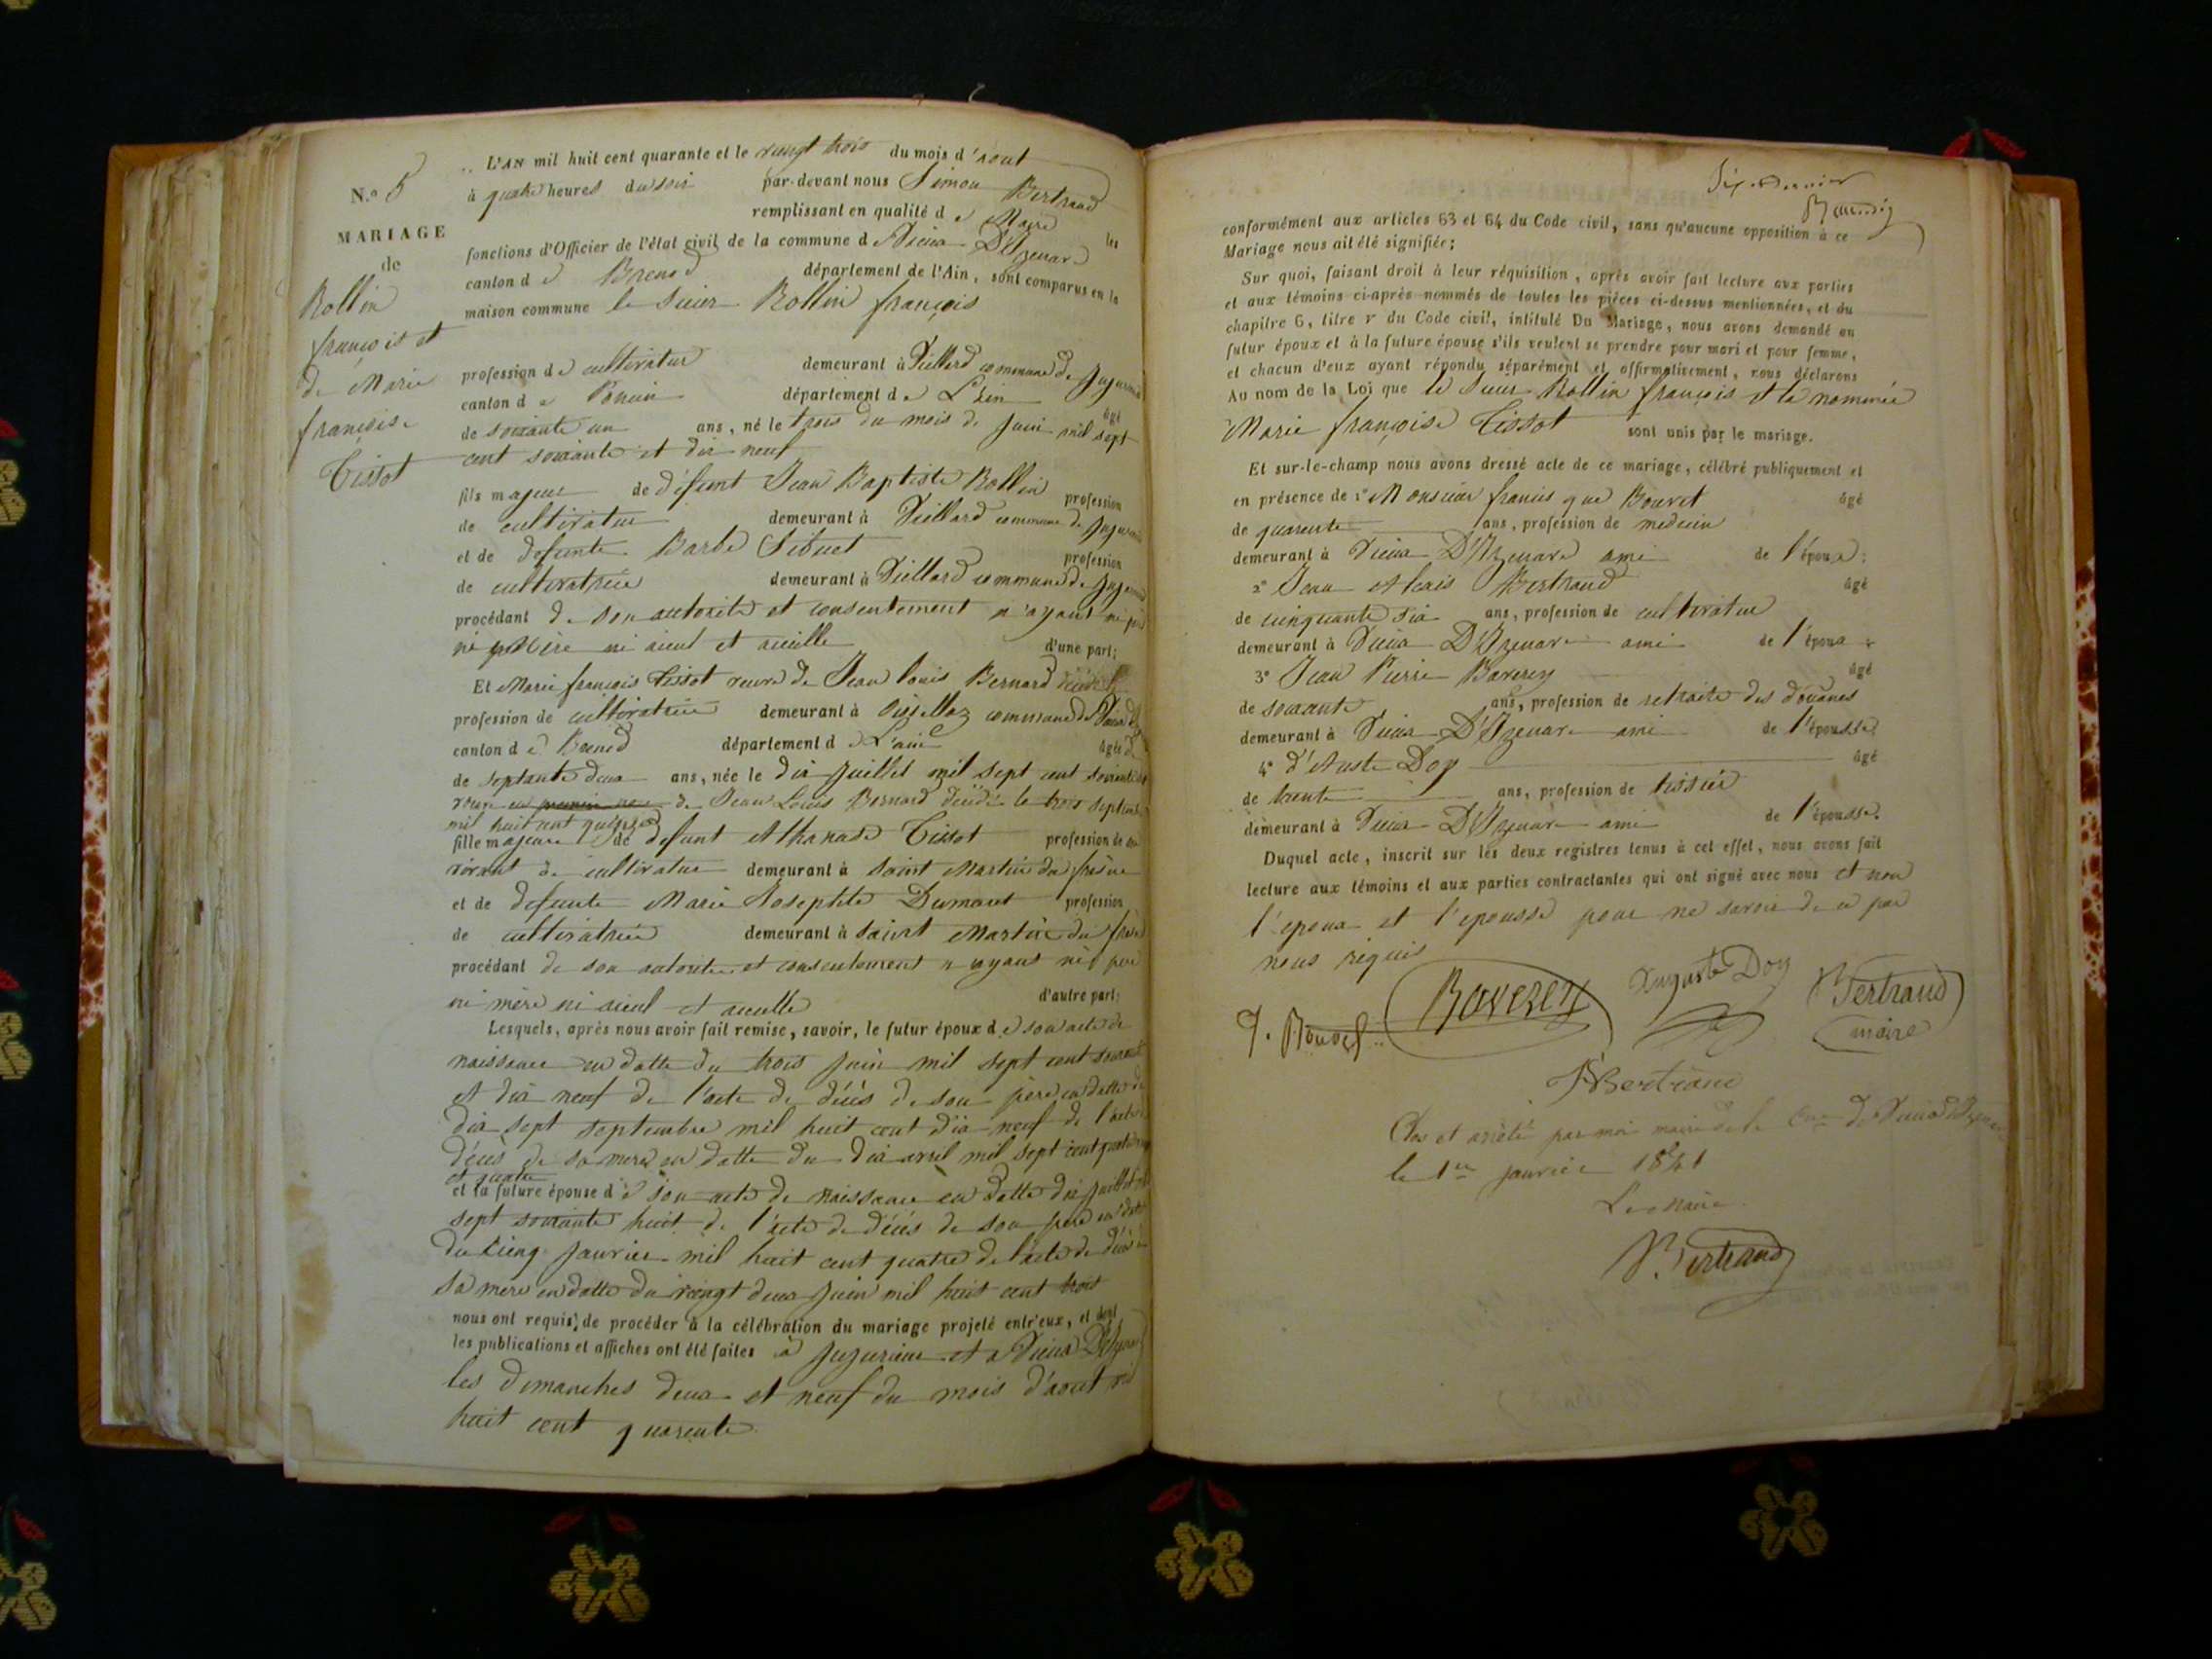 N.º 5
MARIAGE
de
Rollin
françois et
de Marie
françoise
Tissot
L'AN mil huit cent quarante et le vingt trois du mois d'aout
à quatre heures du soir par-devant nous Simon Bertrand
remplissant en qualité de Maire les
fonctions d'Officier de l'état civil de la commune de Vieux D'Izenave
canton de Brenod département de l'Ain, sont comparus en la
maison commune le sieur Rollin françois
profession de cultivateur demeurant à Viellard commune de Jujurieux
canton de Poncin département de L'ain âgé
de soixante un ans, né le trois du mois de juin mil sept
cent soixante et dix neuf
fils majeur de défunt Jean Baptiste Rollin profession
de cultivateur demeurant à Viellard commune de
et de defunte Barbe Sibuet profession
de cultivatrice demeurant à Viellard commune de
procédant de son autorité et consentement n'ayant ni père
ni mère ni aieul et aieulle d'une part;
Et Marie françois Tissot veuve de Jean louis Bernard
profession de cultivatrice demeurant à commune de
canton de Brenod département de L'ain âgée
de septante deux ans, née le dix juillet mil sept cent soixante
de Jean Louis Bernard décédé le trois septembre
mil huit cent
fille majeure de defunt Athanase Tissot profession de son
vivant de cultivateur demeurant à saint Martin du frêne
et de defunte Marie Josephte Dumont profession
de cultivatrice demeurant à saint Martin du
procédant de son autorité et consentement n'ayant ni père
ni mère ni aieul et aieulle d'autre part;
Lesquels, après nous avoir fait remise, savoir, le futur époux de son acte de
naissance en datte du trois juin mil sept cent soixante
et dix neuf de l'acte de décés de son père en datte du
dix sept septembre mil huit cent dix neuf de l'acte
décés de sa mere en datte du dix avril mil sept cent
et quatre
et la future épouse de son acte de naissance en datte dix juillet mil
sept soixante huit de l'acte de décés de son père en datte
du cinq janvier mil huit cent quatre de l'acte de décés
sa mere en datte du vingt deux juin mil huit cent trois
nous ont requis de procéder à la célébration du mariage projeté entr'eux, et dont
les publications et affiches ont été faites à Jujurieux et a Vieux D'Izenave
les dimanches deux et neuf du mois d'aout mil
huit cent quarente
conformément aux articles 63 et 64 du Code civil, sans qu'aucune opposition à ce
Mariage nous ait été signifiée;
Sur quoi, faisant droit à leur réquisition, après avoir fait lecture aux parties
et aux témoins ci-après nommés de toutes les pièces ci-dessus mentionnées, et du
chapitre 6, titre V du Code civil, intitulé Du Mariage, nous avons demandé au
futur époux et à la future épouse s'ils veulent se prendre pour mari et pour femme,
et chacun d'eux ayant répondu séparément et affirmativement, nous déclarons
Au nom de la Loi que le sieur Rollin françois et la nommée
Marie françoise Tissot sont unis par le mariage.
Et sur-le-champ nous avons dressé acte de ce mariage, célébré publiquement et
en présence de 1º Monsieur francisque Bouvet âgé
de quarente ans, profession de medecin
demeurant à Vieux D'Izenave ami de l'époux;
2º Jean Alexis Bertrand âgé
de cinquante six ans, profession de cultivateur
demeurant à Vieux D'Izenave ami de l'époux;
3º Jean Pierre Baverey âgé
de soixante ans, profession de retraite des douanes
demeurant à Vieux D'Izenave ami de l'épousse
4º d'Auste Doy âgé
de trente ans, profession de tissier
demeurant à Vieux D'Izenave ami de l'épousse.
Duquel acte, inscrit sur les deux registres tenus à cet effet, nous avons fait
lecture aux témoins et aux parties contractantes qui ont signé avec nous et non
l'epoux et l'epousse pour ne savoir de ce par
nous requis
f. Bouvet Baverey Auguste Doy Bertrand
maire
Bertrand
Clos et arrêté par moi maire de la Cne de Vieux d'Izenave
le 1er janvier 1841
Le maire
Bertrand